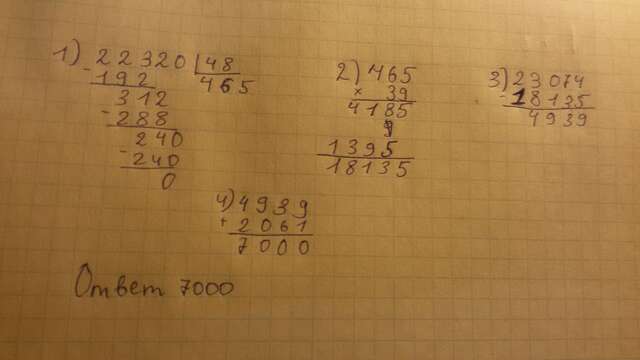 1) 22320 | 48
- 192 465
312
- 288
240
- 240
0
2) 465
× 39
4185
1395
18135
3) 23074
- 18135
4939
4) 4939
+ 2061
7000
Ответ 7000